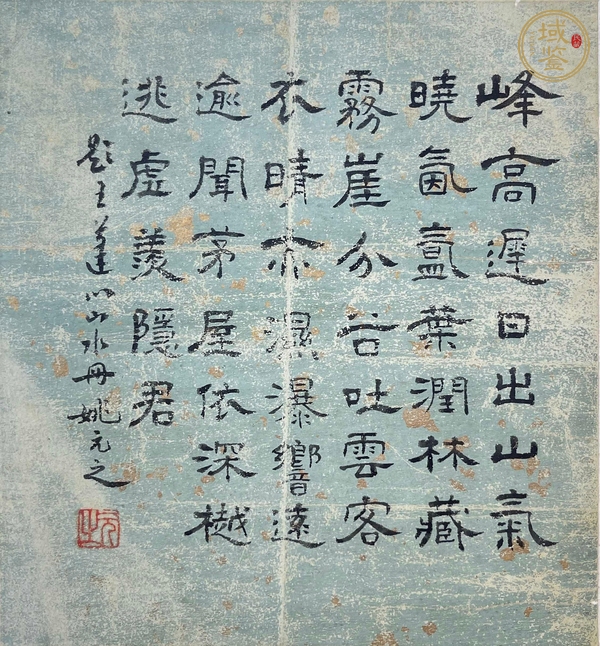 峰高遲日出山氣
曉氤氳葉潤林藏
霧崖分谷吐雲客
衣晴亦濕瀑響遠
逾聞茅屋依深樾
逃虛羨隱君
題王蓬心山水冊姚元之
元之
域鉴